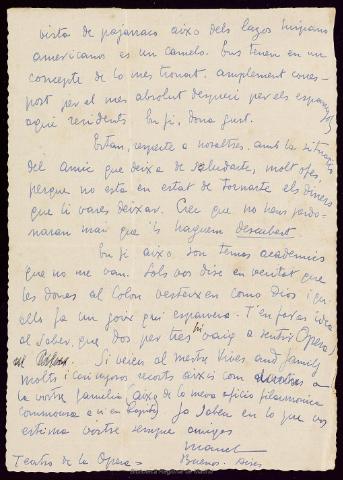 vista de pajanaco aixo dels lazos hispano
americanos es un camelo. Ens tenen en un
concepte de lo mes tronat. amplement corres-
post per el mes absolut despreci per els espanyols
aqui residents. En fi, dona gust.
Estan, respecte a nosaltres. amb la situacio
del amic que deixa de saludarte, molt ofes,
perque no esta en estat de tornarte els diners
que li vares deixar. Crec que no nens perdo-
naran mai que 'ls haguem descubert.
En fi aixo son temes academics
que no me van. Sols vos dire en veritat que
les dones al Colon vesteixen como Dios i qu
ells fa un goix que espanta. T'en faras idea
al saber, que dos per tres hi vaig a sentir (Opera)
Si veieu al mestre Vives and family
molts i carinyosos recorts aixis com a
la vostre familia (aixo de la meva aficio filarmonica
commoura a n'en) Ja sabeu en lo que vos
estima vostre sempre amigas
Manel
Teatro de la Opera = Buenos-Aires